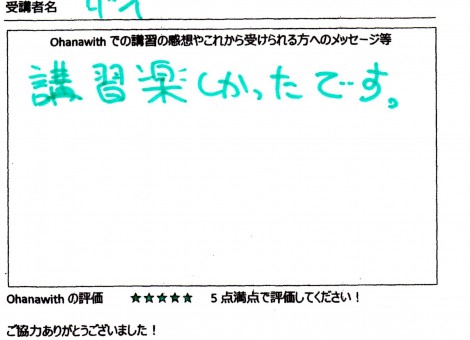 受講者名
Ohanawith での講習の感想やこれから受けられる方へのメッセージ等
講習楽しかったです。
Ohanawith の評価 ★★★★★ 5 点満点で評価してください!
ご協力ありがとうございました!